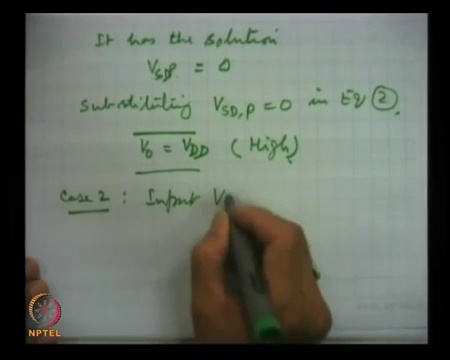 It has the solution
V_SDP = 0
Substituting V_SD,P = 0 in Eq (2),
V_0 = V_DD (High)
Case 2 : Input V
NPTEL